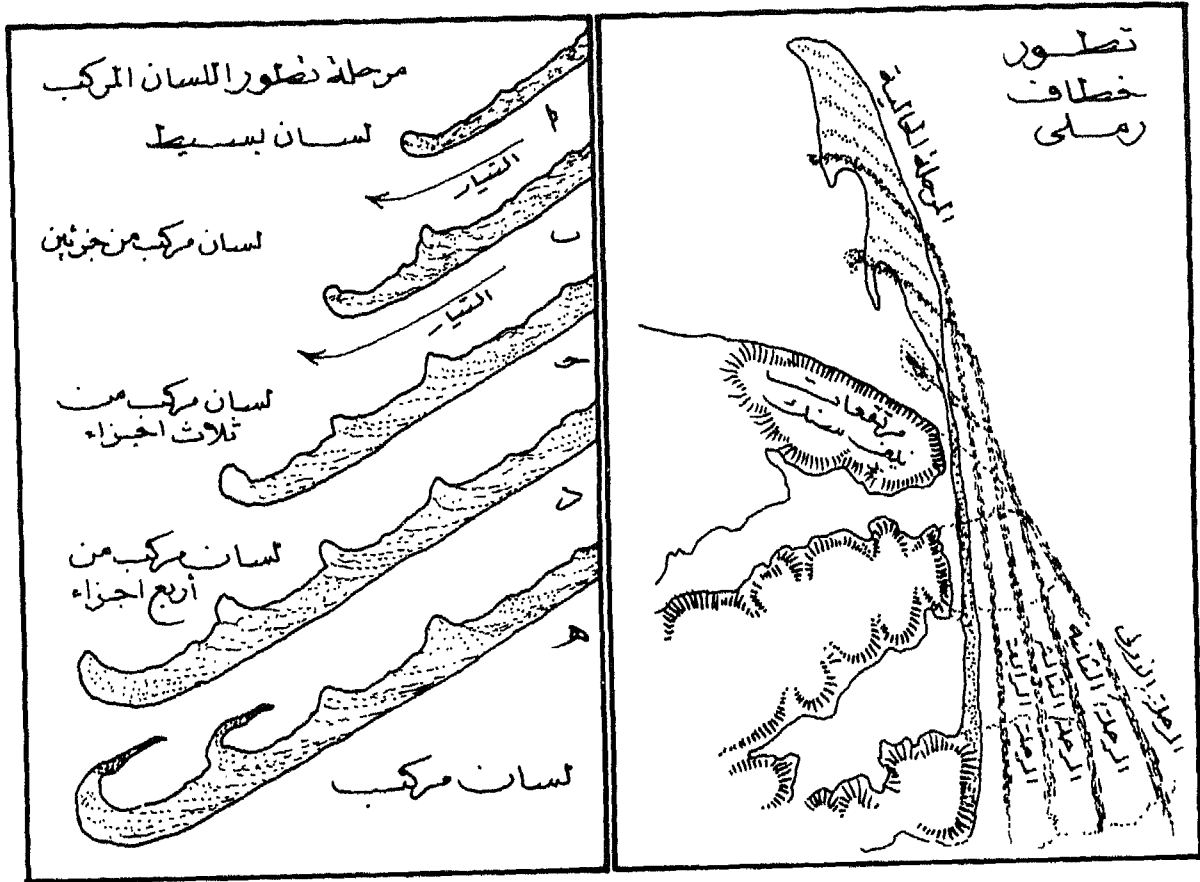 تطور
خطاف
رملى
المرحلة الحالية
مرتفعات
المرحلة الأولى
المرحلة الثانية
المرحلة الثالثة
المرحلة الرابعة
مرحلة تطور اللسان المركب
لسان بسيط
أ
التيار
ب
لسان مركب من جزئين
التيار
حـ
لسان مركب من
ثلاث اجزاء
د
لسان مركب من
أربع اجزاء
هـ
لسان مركب